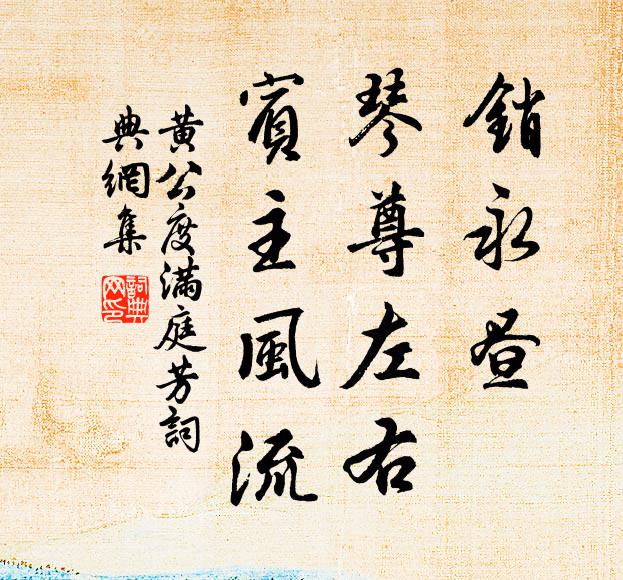 銷永昼
琴尊左右
賓主風流
黃公度滿庭芳詞
典網集
詞典网印